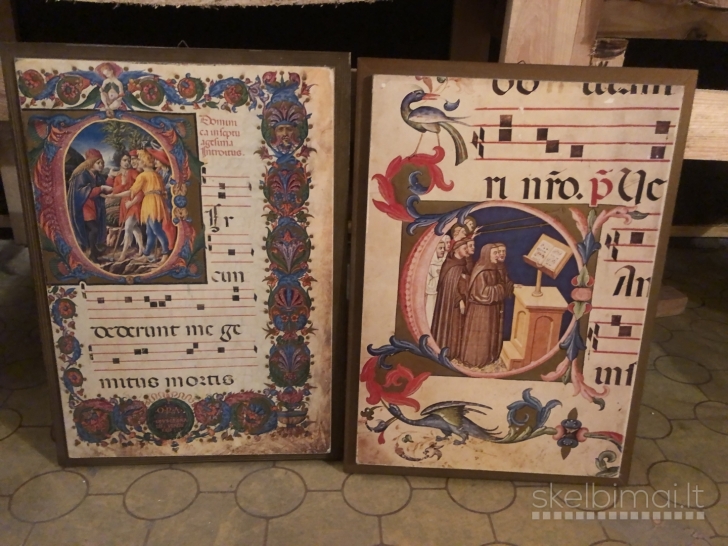 Domini
ca in septu
agesima
Introitus.
Ir
cum
dederunt me ge
mitus mortis
ri nr̃o. p̃
Ar
inf
skelbimai.lt